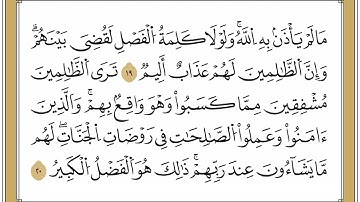 مَا لَمْ يَأْذَنۢ بِهِ ٱللَّهُۚ وَلَوْلَا كَلِمَةُ ٱلْفَصْلِ لَقُضِىَ بَيْنَهُمْۗ
وَإِنَّ ٱلظَّـٰلِمِينَ لَهُمْ عَذَابٌ أَلِيمٌ ١٩ تَرَى ٱلظَّـٰلِمِينَ
مُشْفِقِينَ مِمَّا كَسَبُوا۟ وَهُوَ وَاقِعٌۢ بِهِمْۗ وَٱلَّذِينَ
ءَامَنُوا۟ وَعَمِلُوا۟ ٱلصَّـٰلِحَـٰتِ فِى رَوْضَاتِ ٱلْجَنَّاتِۖ لَهُم
مَّا يَشَآءُونَ عِندَ رَبِّهِمْۚ ذَٰلِكَ هُوَ ٱلْفَضْلُ ٱلْكَبِيرُ ٢٠